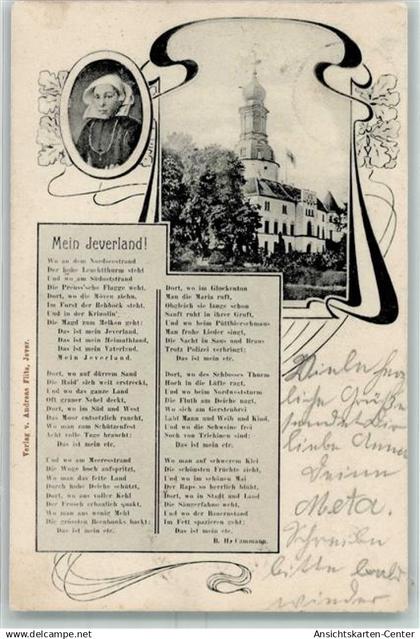 Mein Jeverland!
Wo an dem Nordseestrand
Der hohe Leuchtthurm steht
Und wo am Südseestrand
Die Preuss'sche Flagge weht,
Dort, wo die Möven ziehn,
Im Forst der Rehbock steht
Und in der Krizolin'
Die Magd zum Melken geht:
Das ist mein Jeverland,
Das ist mein Heimathland,
Das ist mein Vaterland,
Mein Jeverland.
Dort, wo auf dürrem Sand
Die Haid' sich weit erstreckt,
Und wo das ganze Land
Oft grauer Nebel deckt,
Dort, wo im Süd und West
Das Moor entsetzlich raucht,
Wo man zum Schützenfest
Acht volle Tage braucht:
Das ist mein etc.
Und wo am Meeresstrand
Die Woge hoch aufspritzt,
Wo man das fette Land
Durch hohe Deiche schützt,
Dort, wo aus voller Kehl
Der Frosch erbaulich quakt,
Wo man aus wenig Mehl
Die grössten Bernbunks backt:
Das ist mein etc.
Dort, wo im Glockenton
Man die Maria ruft,
Obgleich sie lange schon
Sanft ruht in ihrer Gruft,
Und wo beim Püttbierschmaus
Man frohe Lieder singt,
Die Nacht in Saus und Braus
Trotz Polizei verbringt:
Das ist mein etc.
Dort, wo des Schlosses Thurm
Hoch in die Lüfte ragt,
Und wo beim Nordweststurm
Die Fluth am Deiche nagt,
Wo sich am Gerstenbrei
Labt Mann und Weib und Kind,
Und wo die Schweine frei
Noch von Trichinen sind:
Das ist mein etc.
Wo man auf schwerem Klei
Die schönsten Früchte zieht,
Und wo im schönen Mai
Der Raps so herrlich blüht,
Dort, wo in Stadt und Land
Die Sängerfahne weht,
Und wo der Bauernstand
Im Fett spazieren geht:
Das ist mein etc.
Verlag v. Andreas Füls, Jever.
Viele herz
liche Grüße
sendet Dir
liebe Anna
Deine
Meta.
Schreibe
bitte bald
wieder
www.Ansichtskarten-Center.de
Ansichtskarten-Center